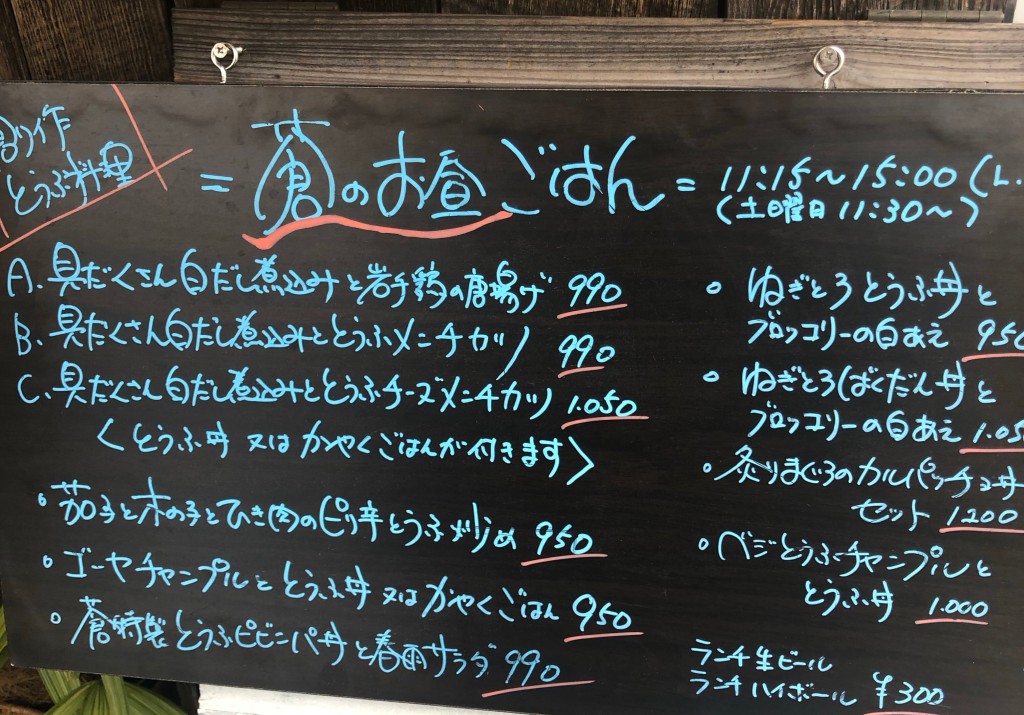 創作
とうふ料理
= 蒼のお昼ごはん =
11:15〜15:00 (L.
(土日曜日 11:30〜)
A. 具だくさん白だし煮込みと岩手鶏の唐揚げ 990
B. 具だくさん白だし煮込みととうふメンチカツ 990
C. 具だくさん白だし煮込みととうふチーズメンチカツ 1.050
〈とうふ丼 又は かやくごはんが付きます〉
・茄子と木の子とひき肉のピリ辛とうふ炒め 950
・ゴーヤチャンプルと とうふ丼 又は かやくごはん 950
・蒼特製とうふビビンバ丼と春雨サラダ 990
・ねぎとろとうふ丼と
ブロッコリーの白あえ 950
・ねぎとろばくだん丼と
ブロッコリーの白あえ 1.05
・炙りまぐろのカルパッチョ丼
セット 1200
・ベジとうふチャンプルと
とうふ丼 1.000
ランチ生ビール
ランチハイボール ¥300